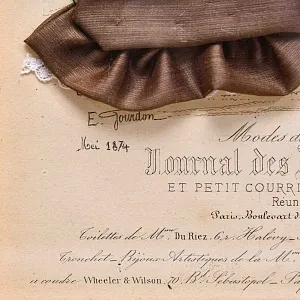 E. Gourdon
Mei 1874
Modes de
Journal des
ET PETIT COURRI
Réun
Paris, Boulevart d
Toilettes de M.me Du Riez, 6, r. Halévy
Tronchet - Bijoux Artistiques de la M.
à coudre Wheeler & Wilson, 70, Bd. Sébastopol - Pa